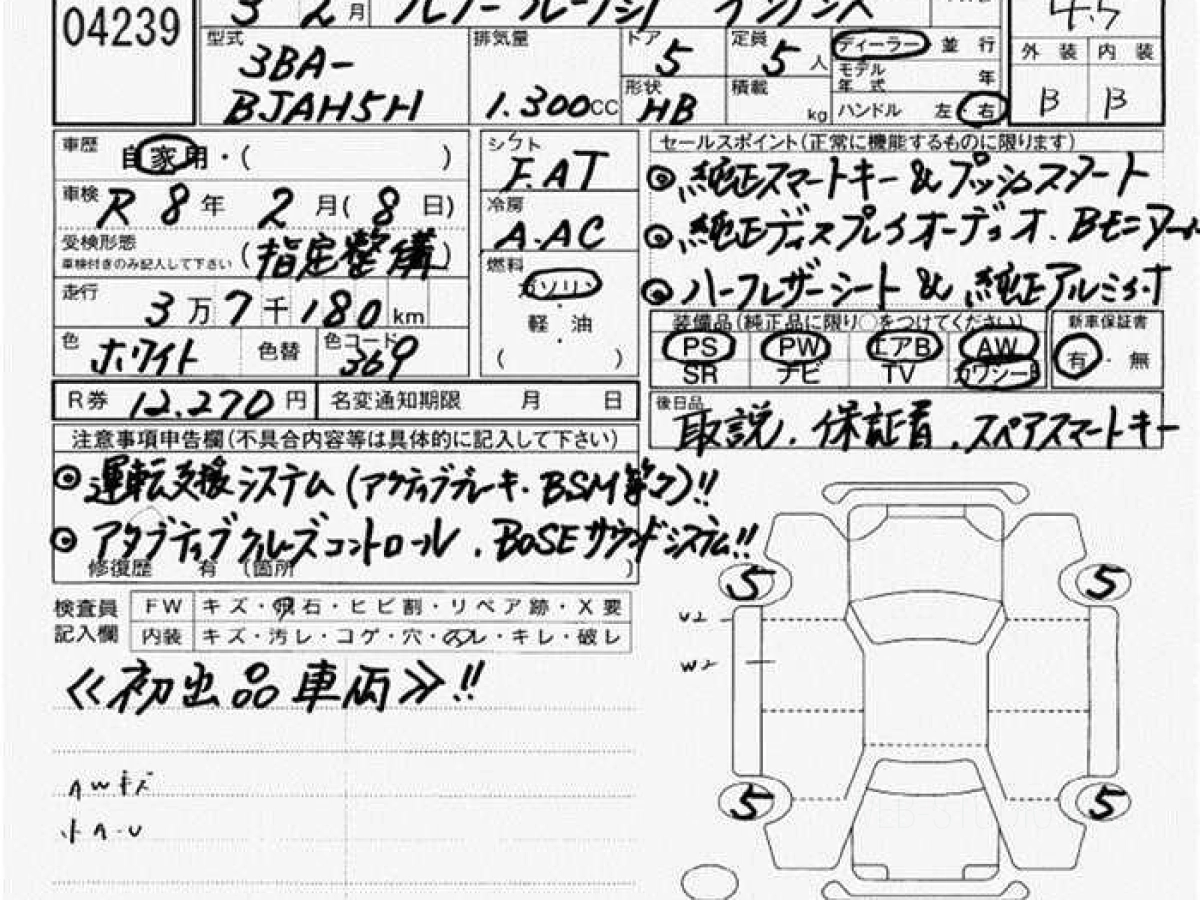 04239
3 2月
4.5
型式 3BA-
BJAH5H
排気量 1.300CC
ドア 5
定員 5人
形状 HB
積載 kg
ディーラー 並行
モデル年式 年
ハンドル 左 右
外装 内装
B B
車歴 自家用・( )
車検 R8年 2月(8日)
受検形態
車検付きのみ記入して下さい (指定整備)
走行 3万7千180km
色 ホワイト 色替 色コード 369
シフト F.AT
冷房 A.AC
燃料 ガソリン
・
軽油
・
( )
セールスポイント(正常に機能するものに限ります)
◎、純正スマートキー&プッシュスタート
◎、純正ディスプレイオーディオ.Bモニター
◎ ハーフレザーシート&純正アルミ
装備品(純正品に限り○をつけてください)
PS PW エアB AW
SR ナビ TV カワシート
新車保証書
有・無
R券 12.270円 名変通知期限 月 日
後日品 取説.保証書.スペアスマートキー
注意事項申告欄(不具合内容等は具体的に記入して下さい)
◎ 運転支援システム(アクティブブレーキ.BSM等々)!!
◎ アダプティブクルーズコントロール.BOSEサウンドシステム!!
修復歴 有 (箇所 )
検査員記入欄
FW キズ・飛石・ヒビ割・リペア跡・X要
内装 キズ・汚レ・コゲ・穴・スレ・キレ・破レ
≪初出品車両≫!!
AWキズ
小A-U
5 5
U2
W2
5 5